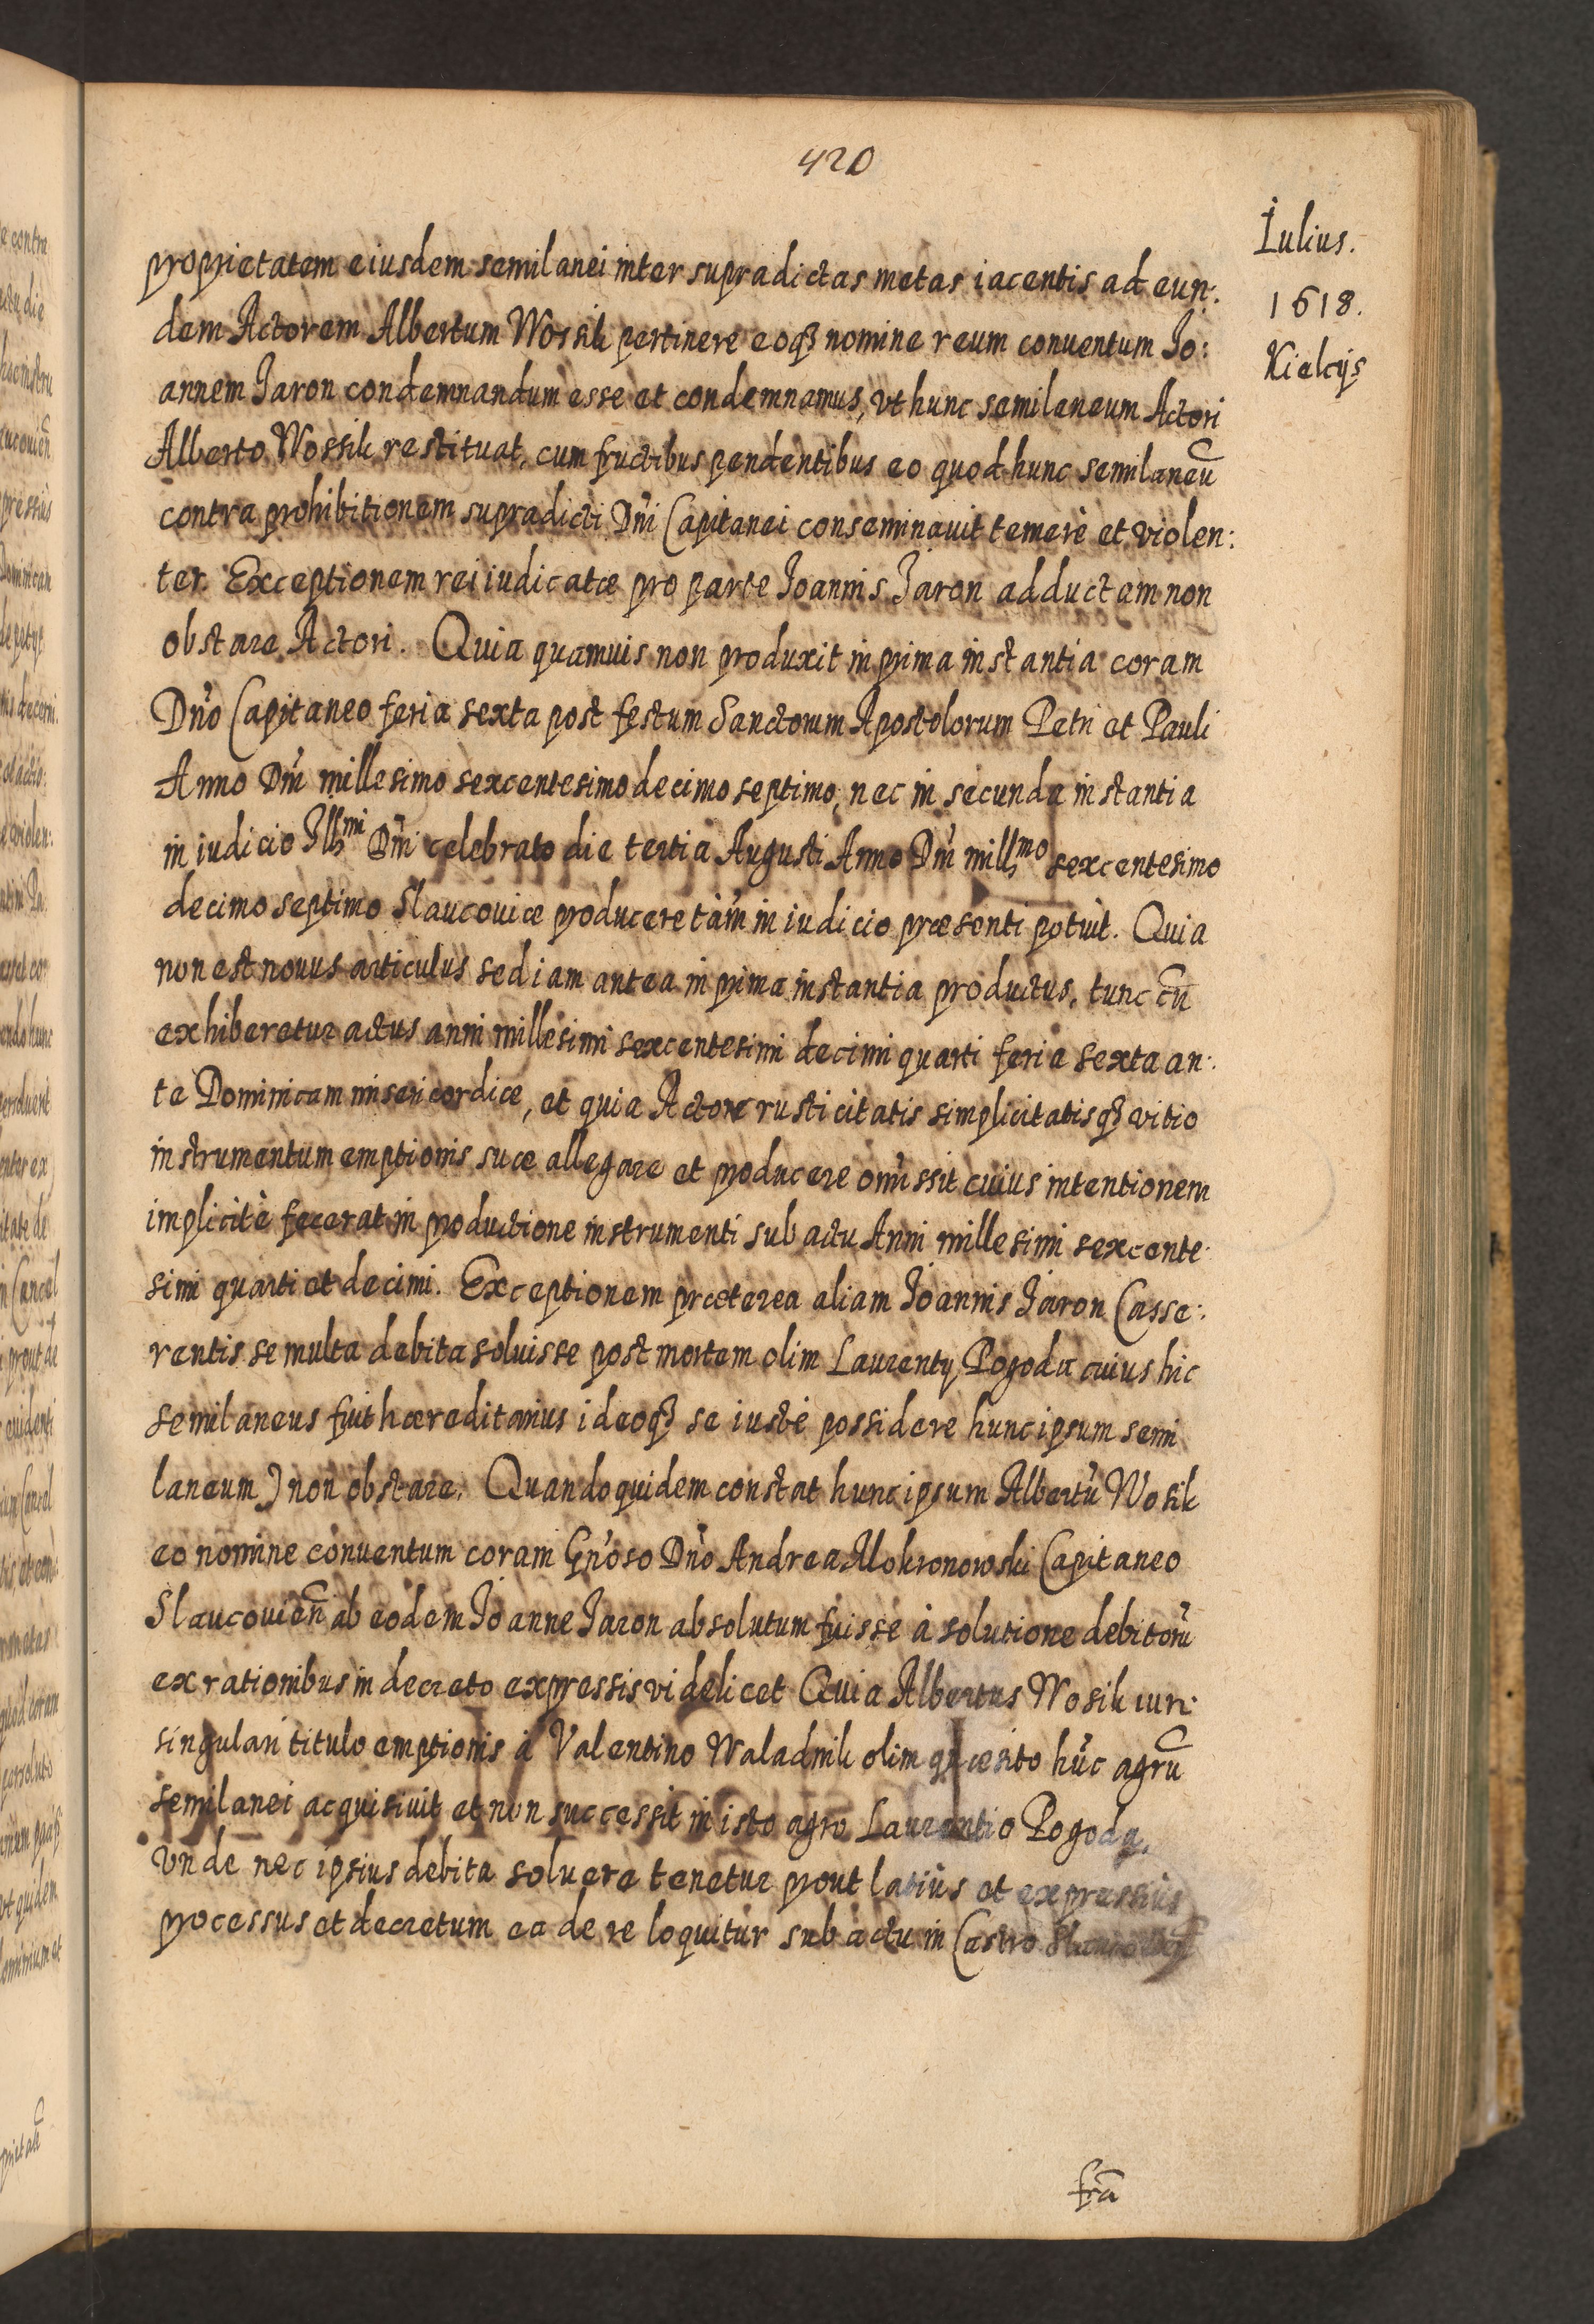 420
Iulius.
1618.
Kielcijs
proprietatem eiusdem semilanei inter supradictas metas iacentis ad eun:
dem Actorem Albertum Wossik pertinere eoq3 nomine reum conuentum Jo:
annem Jaron condemnandum esse et condemnamus, vt hunc semilaneum Actori
Alberto Wossik restituat, cum fructibus pendentibus eo quod hunc semilaneũ
contra prohibitionem supradicti Dñi Capitanei conseminauit temerè et violen:
ter. Exceptionem rei iudicatæ pro parte Joannis Jaron adductam non
obstare Actori. Quia quamuis non produxit in prima instantia coram
Dño Capitaneo feria sexta post festum Sanctorum Apostolorum Petri et Pauli
Anno Dñi millesimo sexcentesimo decimo septimo, nec in secunda instantia
in iudicio Jllmi Dñi celebrato die tertia Augusti Anno Dñi millmo sexcentesimo
decimo septimo Slaucouiæ producere tam̃ in iudicio præsenti potuit. Quia
non est nouus articulus sed iam antea in prima instantia productus, tunc cũ
exhiberetur actus anni millesimi sexcentesimi decimi quarti feria sexta an:
te Dominicam misericordiæ, et quia Actor rusticitatis simplicitatisq3 vitio
instrumentum emptionis suæ allegare et producere omissit cuius intentionem
implicitè fecerat in productione instrumenti sub actu Anni millesimi sexcente:
simi quarti et decimi. Exceptionem præterea aliam Joannis Jaron (asse:
rentis se multa debita soluisse post mortem olim Laurentij Pogoda cuius hic
semilaneus fuit hæreditarius ideoq3 se iustè possidere hunc ipsum semi
laneum) non obstare. Quandoquidem constat hunc ipsum Albertũ Wosik
eo nomine conuentum coram Gñoso Dño Andrea Mokronowski Capitaneo
Slaucouień ab eodem Joanne Jaron absolutum fuisse à solutione debitorũ
ex rationibus in decreto expressis videlicet Quia Albertus Wosik iure
singulari titulo emptionis à Valentino Waladnik olim quæsito hũc agrũ
semilanei acquisiuit et non successit in isto agro Laurentio Pogoda,
Vnde nec ipsius debita soluere tenetur prout latiùs et expressiùs
processus et decretum ea de re loquitur sub actu in Castro
frã